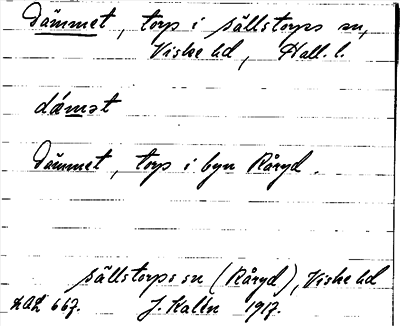 Dämmet, torp i Sällstorps sn,
Viske hd, Hall. l.
dǽmət
Dämmet, torp i byn Råryd.
Sällstorps sn (Råryd), Viske hd
667. J. Kalén 1917.